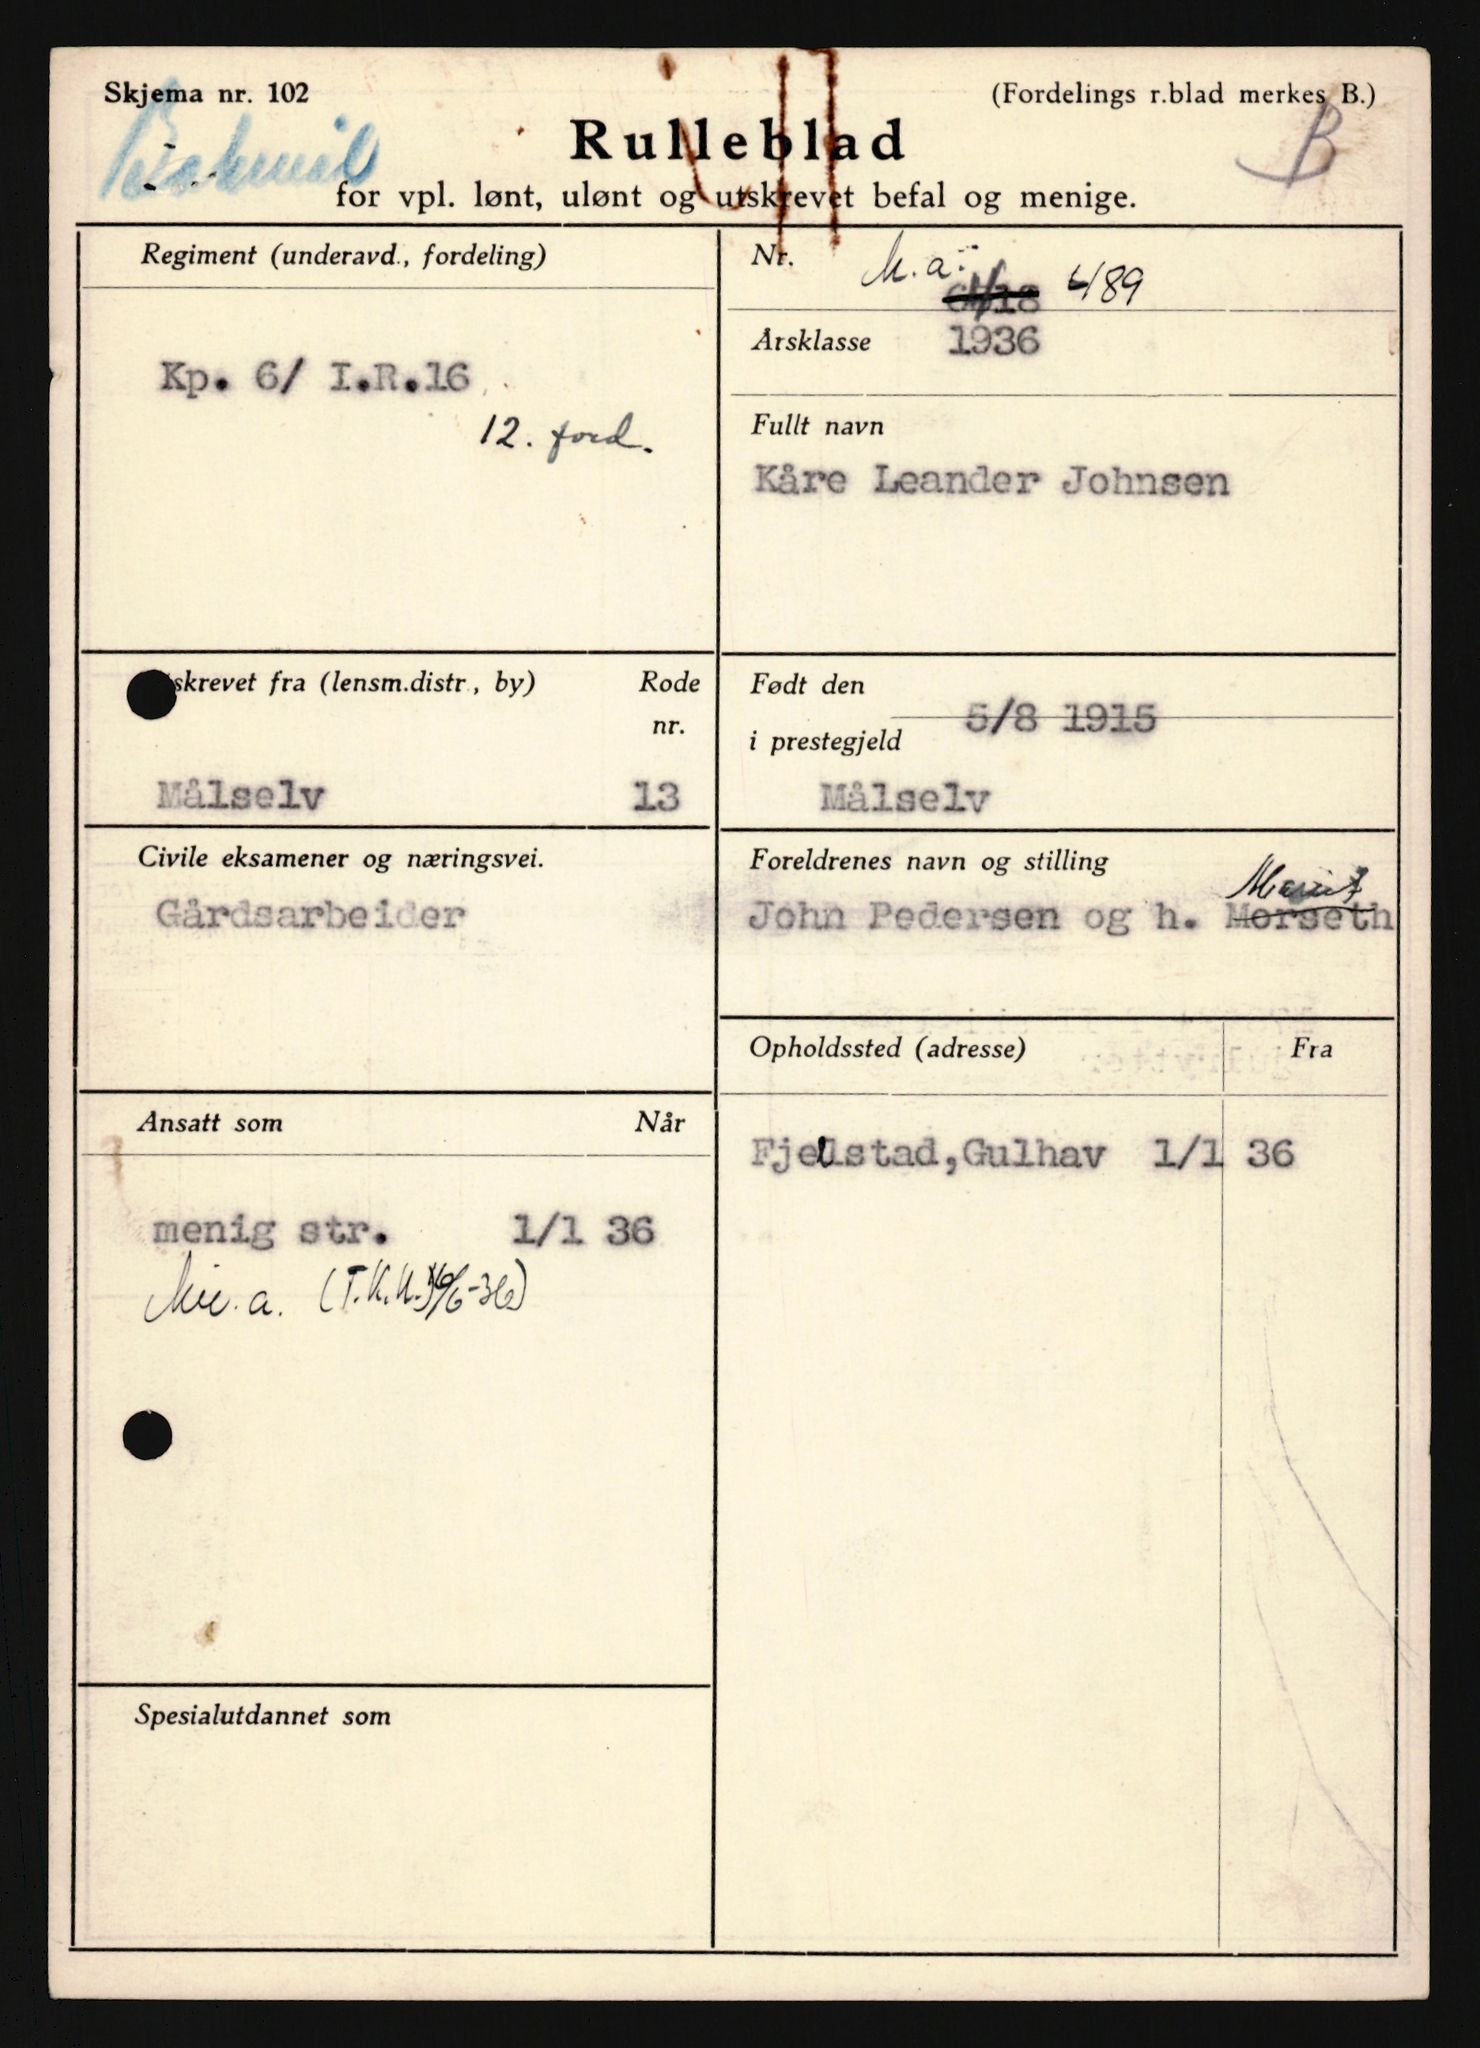 Skjema nr. 102
(Fordelings r.blad merkes B.)
B
Rulleblad
for vpl. lønt, ulønt og utskrevet befal og menige.
Regiment (underavd., fordeling)
Kp. 6/ I.R.16
12. ford.
Nr.
M. a.
489
Årsklasse 1936
Fullt navn
Kåre Leander Johnsen
skrevet fra (lensm.distr., by)
Rode
nr.
Målselv 13
Født den
5/8 1915
i prestegjeld
Målselv
Civile eksamener og næringsvei.
Gårdsarbeider
Foreldrenes navn og stilling
Marit
John Pedersen og h. Morseth
Opholdssted (adresse) Fra
Fjellstad,Gulhav 1/1 36
Ansatt som Når
menig str. 1/1 36
a. (T.K.
Spesialutdannet som